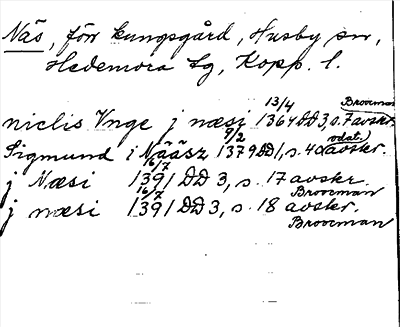 Näs, förr kungsgård, Husby sn,
Hedemora tg, Kopp. l.
niclis Unge j næsi 13/4 1364 DD 3, s. 7 avskr. Broocman
Sigmund i Nääsz 9/2 1379 DD 1, s. 40 avskr. odat.)
j Næsi 16/7 1391 DD 3, s. 17 avskr. Broocman
j næsi 16/7 1391 DD 3, s. 18 avskr.
Broocman